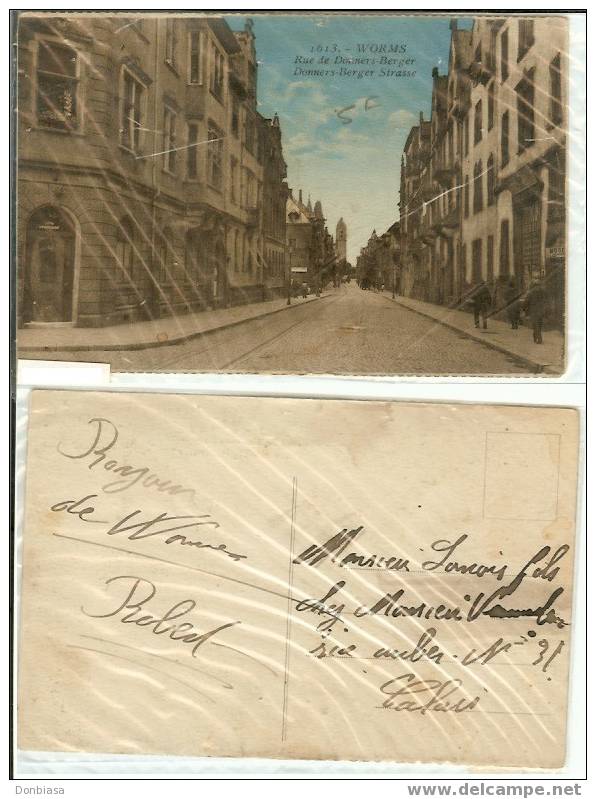 1613. - WORMS
Rue de Donners-Berger
Donners-Berger Strasse
Bonjour
de Worms
Robert
Monsieur Lorrois fils
chez Monsieur
rue N° 31
Calais
Donbiasa
www.delcampe.net